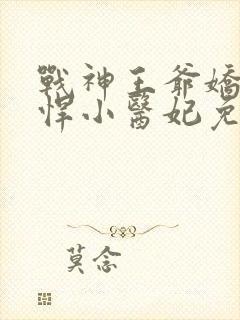 戰神王爺嬌
悍小醫妃免
莫念